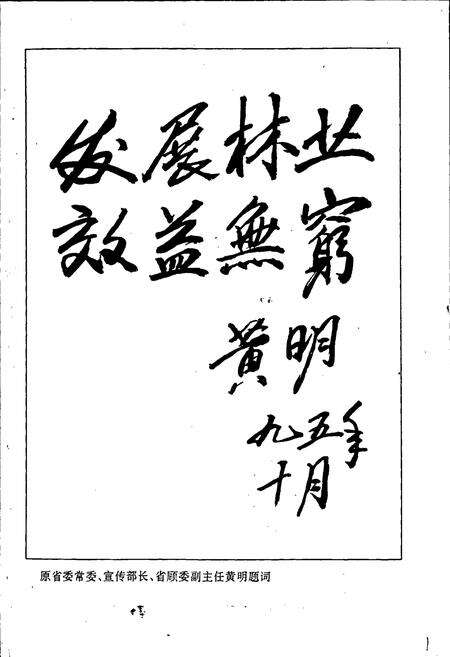 发展林业
效益無窮
黄明
九五年
十月
原省委常委、宣传部长、省顾委副主任黄明题词